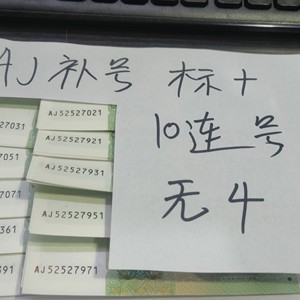 AJ补号 标十
10连号
无4
AJ52527021
7031
AJ52527921
AJ52527931
7051
7071
AJ52527951
361
AJ52527971
391